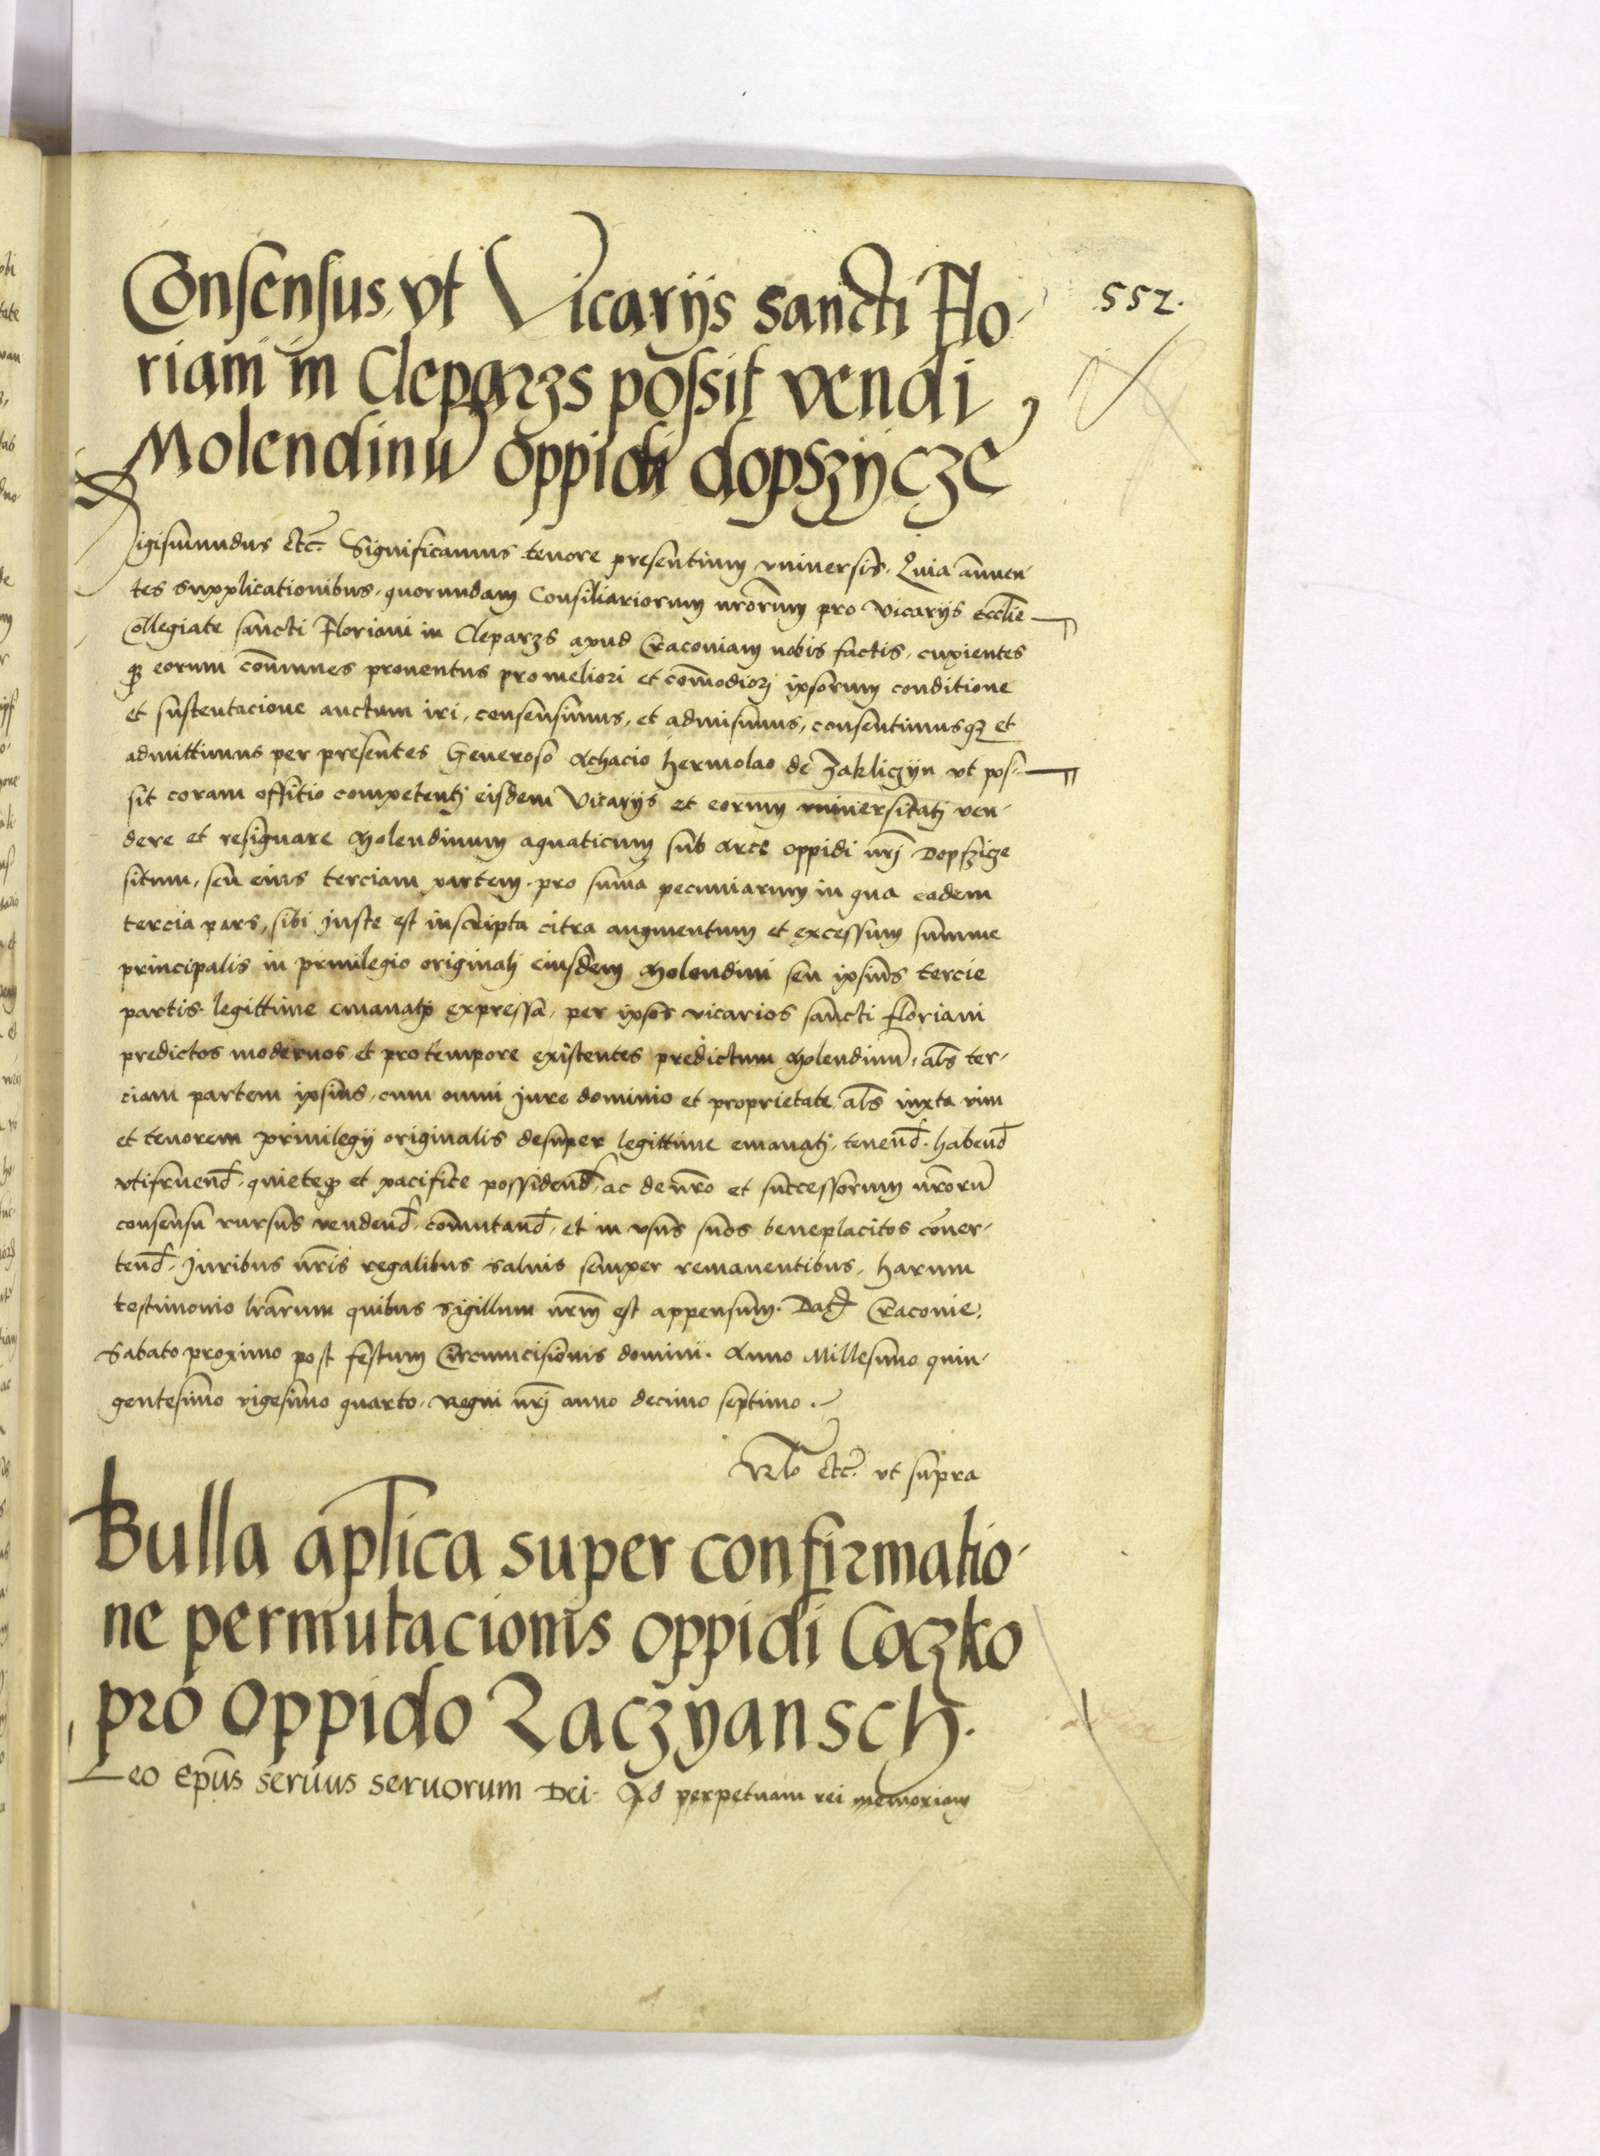 552.
Consensus vt Vicarijs Sancti Flo-
riani in Cleparzs possit vendi
Molendinu oppidi dopszÿcze
Sigismundus etc. Significamus tenore presentium vniuersis. Quia annuen-
tes supplicationibus, quorundam Consiliariorum nrorum pro Vicarijs ecclie
Collegiate sancti Floriani in Cleparzs apud Craconiam nobis factis, cupientes
qȝ eorum comunes prouentus pro meliori et comodiorj ipsorum conditione
et sustentacione auctum iri, consensimus, et admisimus, consentimusqȝ et
admittimus per presentes Generoso Achacio hermolao de Zakliczyn vt pos-
sit coram offitio competentj eisdem Vicarijs et eorum vniuersitatj ven-
dere et resignare Molendinum aquaticum sub Arce oppidi nrj Dopszicze
situm, seu eius terciam partem, pro suma pecuniarum in qua eadem
tercia pars, sibi juste est inscripta citra augmentum et excessum summe
principalis in priuilegio originalj eiusdem Molendini seu ipsius tercie
partis legittime emanato expressa, per ipsos vicarios sancti floriani
predictos modernos et pro tempore existentes predictum Molendinu, als ter-
ciam partem ipsius, cum omni jure dominio et proprietate als iuxta vim
et tenorem priuilegij originalis desuper legittime emanatj, tenend. habend
vtifruend. quieteqȝ et pacifice possidend. ac de nro et successorum nroru
consensu rursus vendend. comutand. et in vsus suos beneplacitos couer-
tend. Juribus nris regalibus saluis semper remanentibus, harum
testimonio lrarum quibus sigillum nrm est appensum. Dat Cracouie.
Sabato proximo post festum Circumcisionis domini. Anno Millesimo quin-
gentesimo vigesimo quarto. Regni nrj anno decimo septimo.
Rlo etc. vt supra
Bulla aplica super confirmatio-
ne permutacionis oppidi Coczko
pro oppido Raczyansch.
Leo Epus seruus seruorum Dei. Ad perpetuam rei memoriam